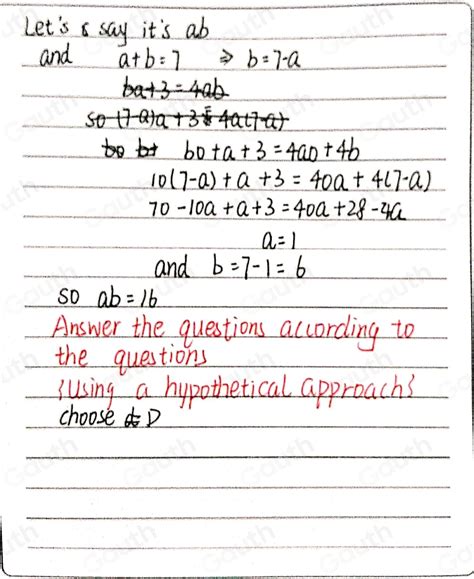 Let's & say it's ab
and a+b=7 ⇒ b=7-a
ba+3=4ab
so (7-a)a+3=4a(7-a)
bo bt b0+a+3=4a0+4b
10(7-a)+a+3=40a+4(7-a)
70-10a+a+3=40a+28-4a
a=1
and b=7-1=6
so ab=16
Answer the questions according to
the questions
{Using a hypothetical approach}
choose D